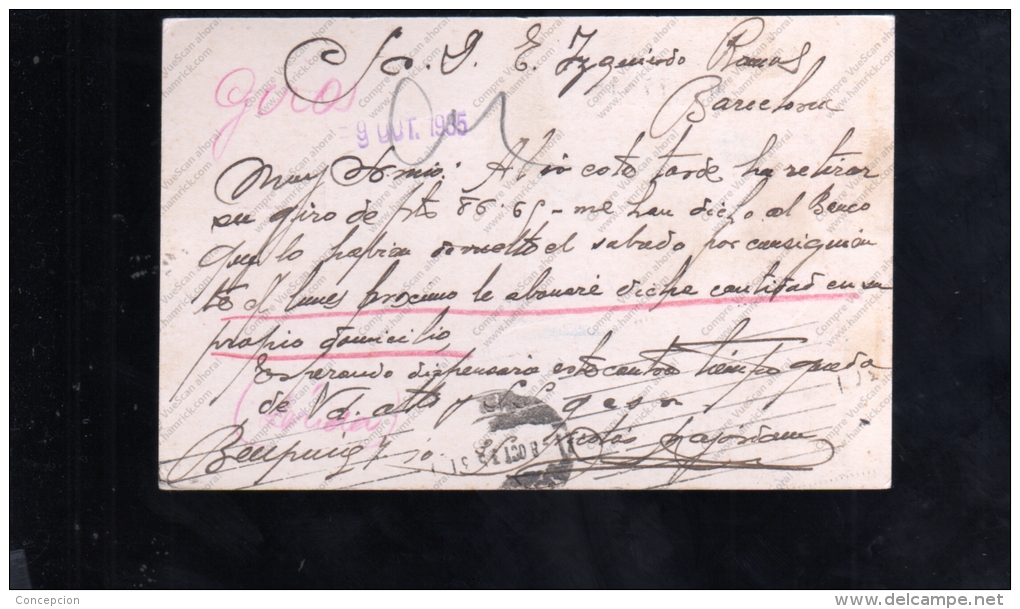 Sr. D. E. Yzquierdo Ramos
Barcelona
Giros
9 OUT. 1935
Muy Sr mio: Al ir esta tarde ha retirar
su giro de pts 86.65 - me han dicho al Banco
que lo habian devuelto el sabado por consiguien
te el lunes proximo le abonaré dicha cantidad en su
propio domicilio
Esperando dispensaria este contra tiempo queda
de Vd. atto y S.S.
q e s m
(Lérida)
Bellpuig 7
Compre VueScan ahora!
www.hamrick.com
Concepcion
http://www.delcampe.net